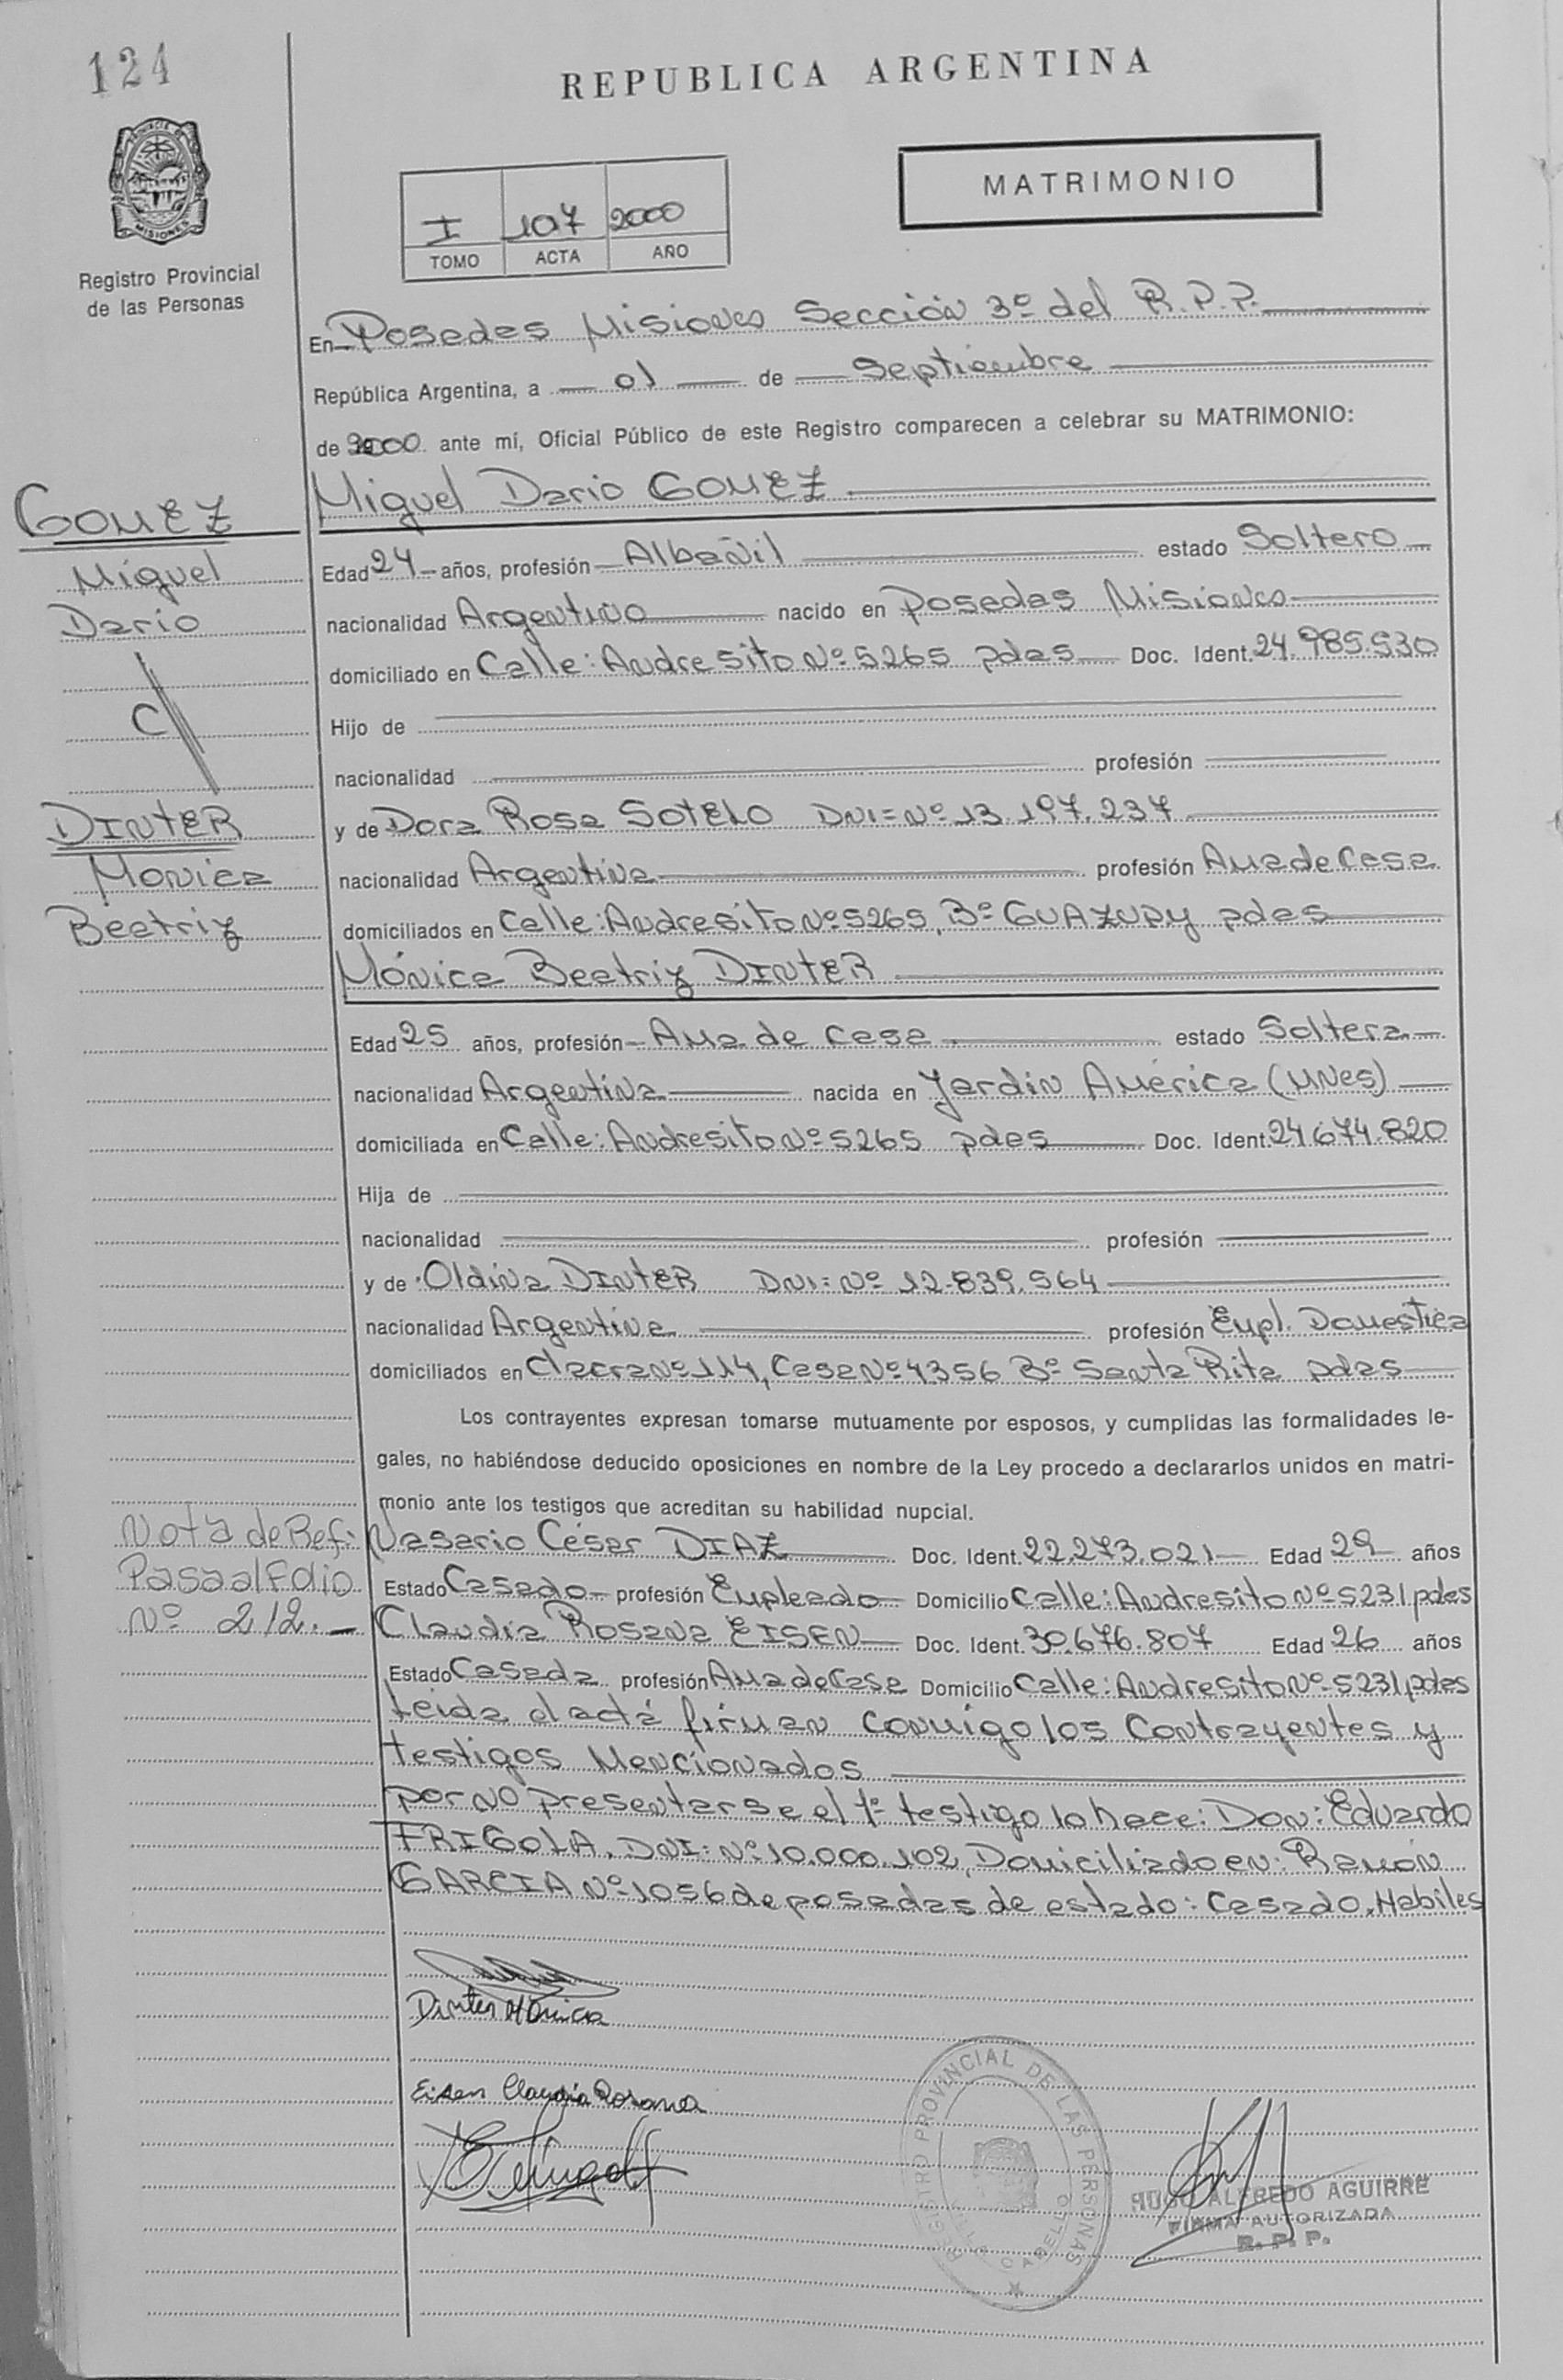 124
REPUBLICA ARGENTINA
PROVINCIA DE
MISIONES
Registro Provincial
de las Personas
MATRIMONIO
I 107 2000
TOMO ACTA AÑO
En Posadas Misiones Sección 3º del R.P.P.
República Argentina, a 01 de Septiembre
de 2000 ante mí, Oficial Público de este Registro comparecen a celebrar su MATRIMONIO:
GOMEZ
Miguel
Dario
C/
DINTER
Monica
Beatriz
Miguel Dario GOMEZ
Edad 24 años, profesión Albañil estado Soltero
nacionalidad Argentino nacido en Posadas Misiones
domiciliado en Calle: Andresito Nº 5265 pdas Doc. Ident. 24.985.530
Hijo de
nacionalidad profesión
y de Dora Rosa SOTELO DNI=Nº 13.197.237
nacionalidad Argentina profesión Ama de Casa
domiciliados en Calle: Andresito Nº 5265, Bº GUAZUPY pdas
Mónica Beatriz DINTER
Edad 25 años, profesión Ama de casa. estado Soltera
nacionalidad Argentina nacida en Jardín América (MNes)
domiciliada en Calle: Andresito Nº 5265 pdas Doc. Ident. 24674.820
Hija de
nacionalidad profesión
y de Oldina DINTER DNI: Nº 12.839.564
nacionalidad Argentina profesión Empl. Domestica
domiciliados en Chacra Nº 114, Casa Nº 4356 Bº Santa Rita pdas
Los contrayentes expresan tomarse mutuamente por esposos, y cumplidas las formalidades le-
gales, no habiéndose deducido oposiciones en nombre de la Ley procedo a declararlos unidos en matri-
monio ante los testigos que acreditan su habilidad nupcial.
Nota de Ref:
Pasa al Folio
Nº 212.-
Nasario César DIAZ Doc. Ident. 22.273.021 Edad 29 años
Estado Casado profesión Empleado Domicilio Calle: Andresito Nº 5231 pdas
Claudia Rosana EISEN Doc. Ident. 30.676.807 Edad 26 años
Estado Casada profesión Ama de Casa Domicilio Calle: Andresito Nº 5231 pdas
Leida el acta firman conmigo los Contrayentes y
testigos Mencionados
por no presentarse el 1º testigo lo hace: Don: Eduardo
FRIGOLA, DNI: Nº 10.000.102, Domiciliado en: Ramón
GARCIA Nº 1056 de posadas de estado: Casado, Habiles
Dinter Mónica
Eisen Claudia Rosana
REGISTRO PROVINCIAL DE LAS PERSONAS
VILLA CABELLO
HUGO ALFREDO AGUIRRE
FIRMA AUTORIZADA
R. P. P.